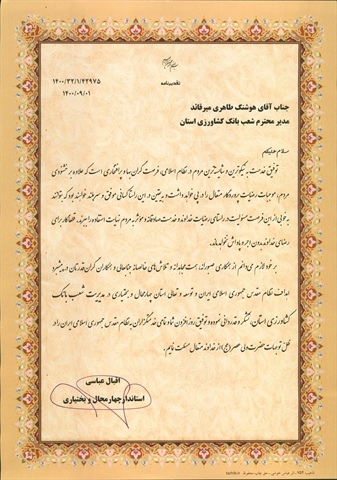 تقدیرنامه
۱۴۰۰/۳۲/۱/۴۲۹۷۵
۱۴۰۰/۰۹/۰۱
جناب آقای هوشنگ طاهری میرقائد
مدیر محترم شعب بانک کشاورزی استان
سلام علیکم
توفیق خدمت به نیکوترین و نیایش‌ترین مردم در نظام اسلامی، فرصت گران‌بها و پرافتخاری است که علاوه بر خشنودی
مردم، موجبات رضایت پروردگار متعال را در پی خواهد داشت و بی‌یقین در این راستا کسانی موفق و سرآمد خواهند بود که بتوانند
به خوبی از این فرصت مسئولیت در راستای رضایت خداوند و خدمت صادقانه و مؤثر به مردم نهایت استفاده را ببرند. قطعاً کار برای
رضای خداوند بدون اجر و پاداش نخواهد ماند.
بر خود لازم می‌دانم از همکاری صبورانه، همت مجدانه و تلاش‌های خالصانه جنابعالی و همکاران گران‌قدرتان در پیشبرد
اهداف نظام مقدس جمهوری اسلامی ایران و توسعه و تعالی استان چهارمحال و بختیاری در مدیریت شعب بانک
کشاورزی استان، تشکر و قدردانی نموده و توفیق روزافزون شما و تمامی خدمتگزاران به نظام مقدس جمهوری اسلامی ایران را در
ظل توجهات حضرت ولی عصر (عج) از خداوند متعال مسئلت نمایم.
اقبال عباسی
استاندار چهارمحال و بختیاری